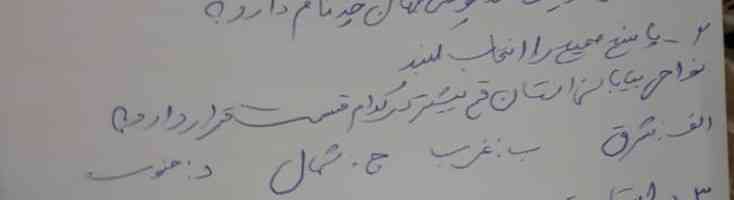 چه نام دارد؟
۲- پاسخ صحیح را انتخاب کنید
نواحی بیابانی استان قم بیشتر در کدام قسمت قرار دارد؟
الف: شرق ب: غرب ج: شمال د: جنوب
۳-